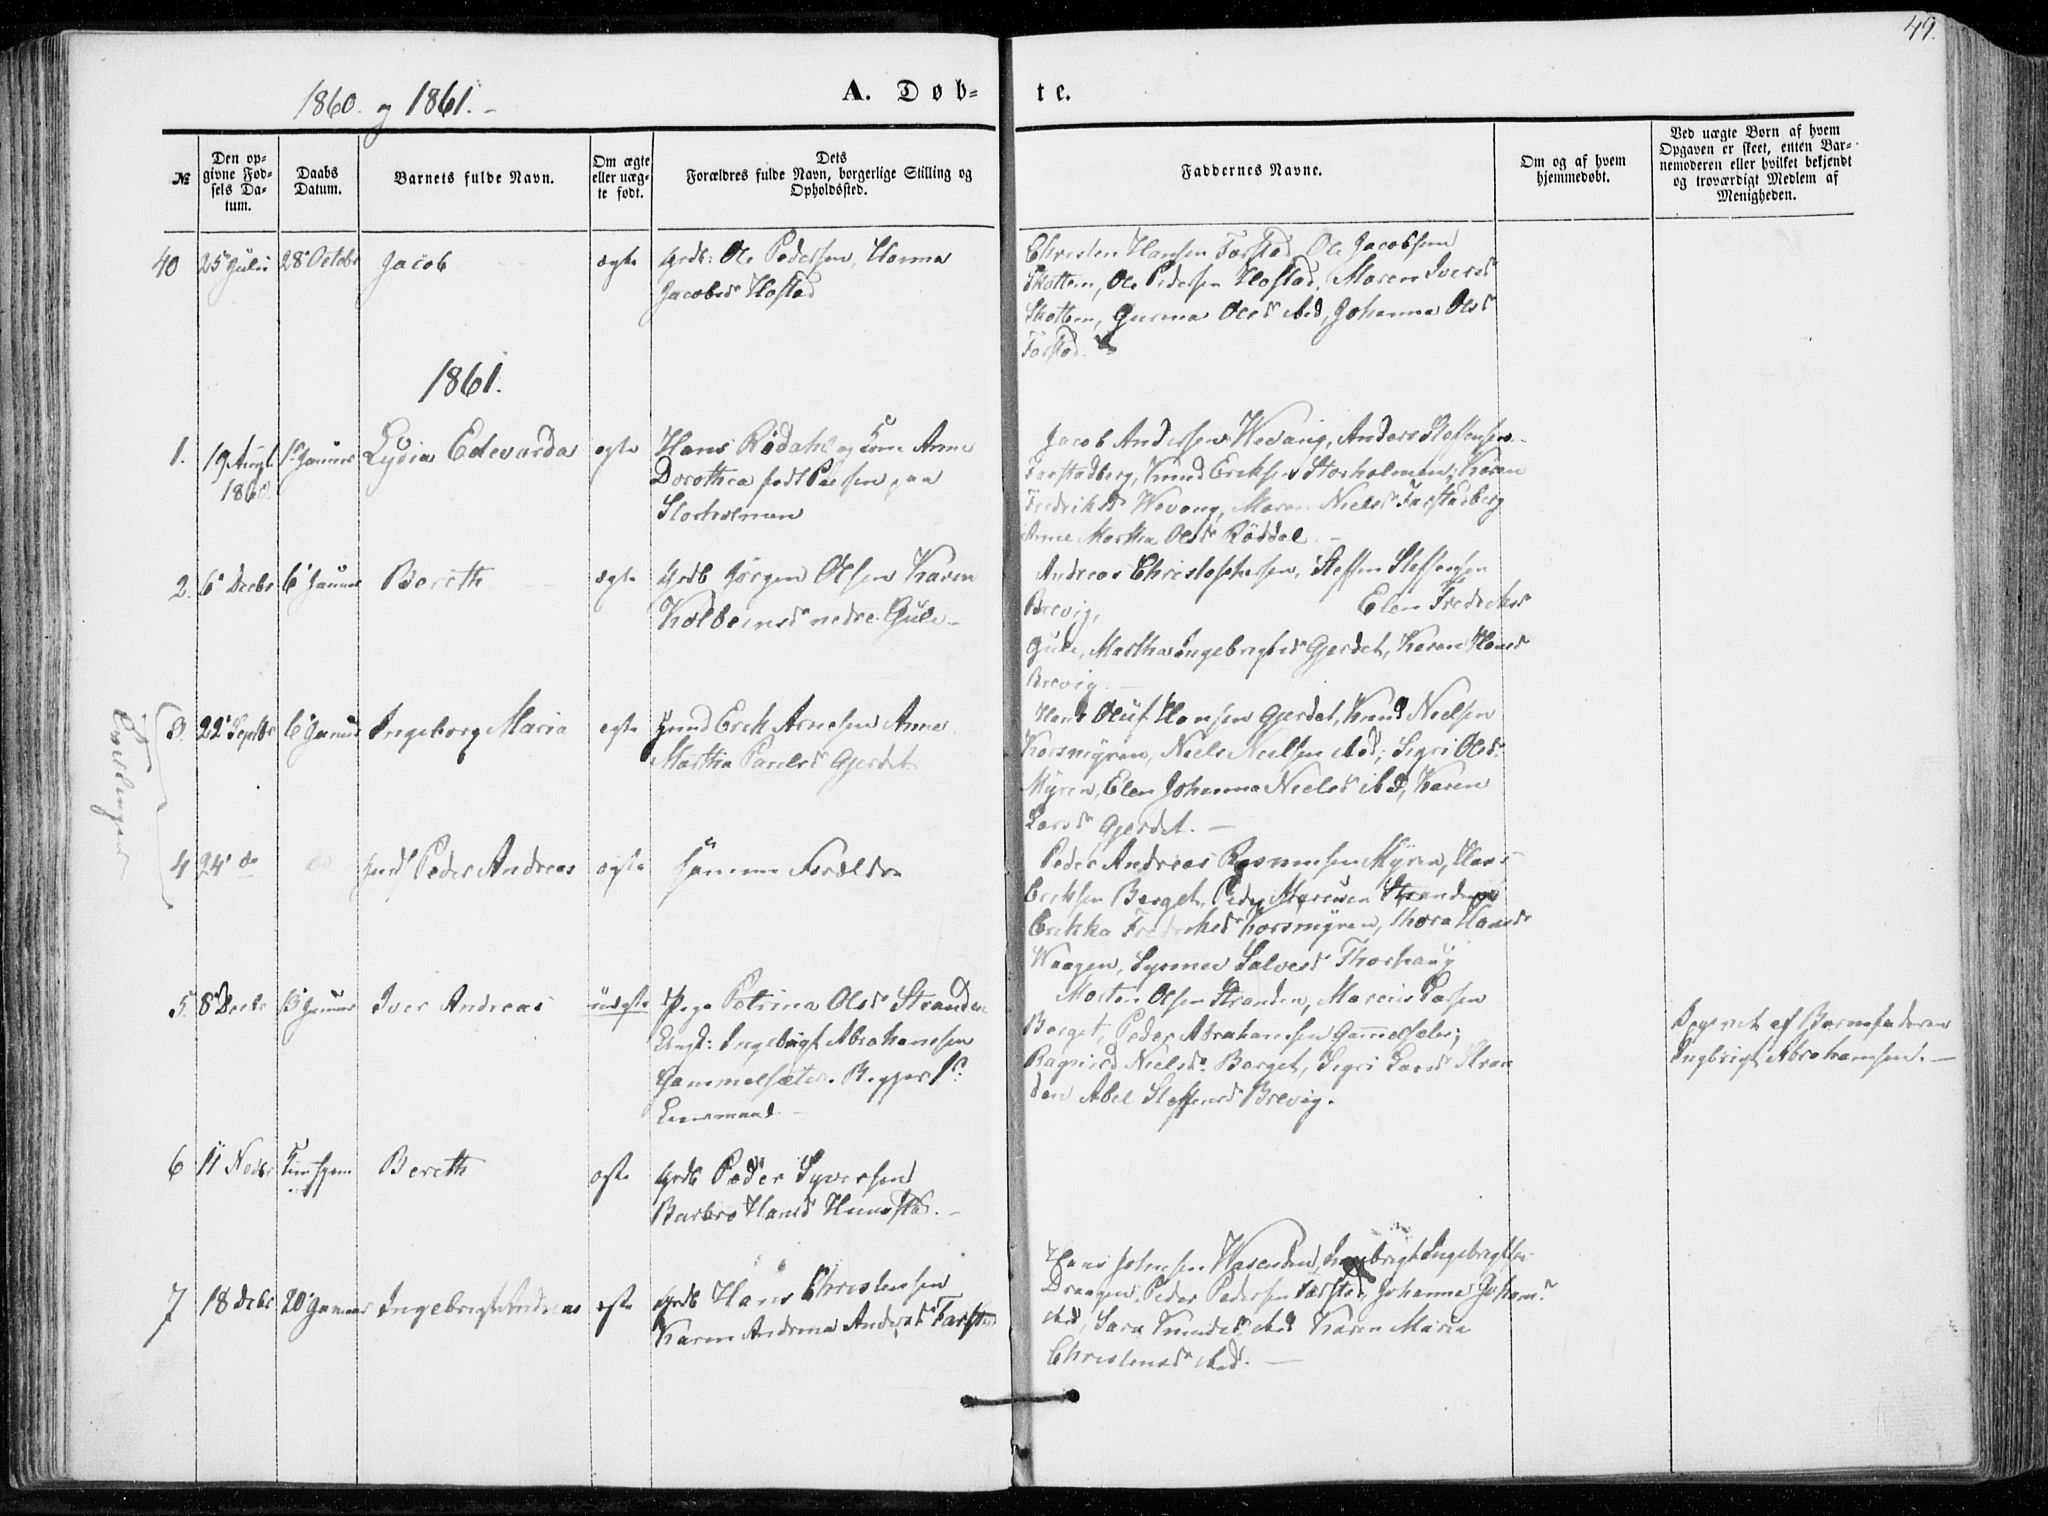 49.
1860. og 1861.
A. Døb-
te.
№
Den op-
givne Fød-
sels Da-
tum.
Daabs
Datum.
Barnets fulde Navn.
Om ægte
eller uæg-
te født.
Dets
Forældres fulde Navn, borgerlige Stilling og
Opholdssted.
Faddernes Navne.
Om og af hvem
hjemmedøbt.
Ved uægte Børn af hvem
Opgaven er skeet, enten Bar-
nemoderen eller hvilket bekjendt
og troværdigt Medlem af
Menigheden.
40 25 Juli 28 Octobr Jacob ægte Grdb: Ole Pedersen, Hanna
Jacobsd Hostad
Christen Hansen Farstad Ole Jacobsen
Skotten, Ole Pedersen Hostad, Maren Iversd
Skotten, Gurina Olesd ibd, Johanna Olsd
Farstad.
1861.
1. 19 Augt
1860. 1 Januar Lydia Edevarda ægte Hans Rødahl og Kone Anne
Dorothea født Paesen paa
Storholmen
Jacob Andersen Wevang, Anders Steffensen
Farstadberg, Knud Eriksen Storholmen, Karen
Fredriksd Wevang, Maren Nielsd Farstadberg
Anne Martha Olsd Røddal
2. 6 Decbr 6 Januar Bereth ægte Grdb Jørgen Olsen Karen
Kolbeinsd nedre Gule
Andreas Christophersen, Steffen Steffensen
Brevig, Elen Fredriksd
Gule, Martha Ingebrigtsd Gjerdet, Karen Hansd
Brevig.
Tvillinger
3. 22 Septbr 6 Januar Ingeborg Maria ægte Erik Arnesen Anne
Martha Paulsd Gjerdet
Hans Oluf Hansen Gjerdet, Knud Nielsen
Korsmyren, Niels Nielsen ibd, Sigri Olsd
Myren, Elen Johanna Nielsd ibd, Karen
Larsd Gjerdet.
4 24 do do Peder Andreas ægte samme Forældre
Peder Andreas Rasmusen Myren, Hans
Eriksen Berget, Peder Stranden
Erikka Fredriksd Korsmyren, Thora Hansd
Waagen, Synnev Salvesd Thorhaug
5. 8 Decbr 13 Januar Iver Andreas uægte Pige Petrina Olsd Stranden
Ungk: Ingebrigt Abrahamsen
Gammelsæter. Begges 1ste
Leiermaal
Morten Olsen Stranden, Marius Larsen
Berget, Peder Abrahamsen Gammelsæter,
Ragnild Nielsd Berget, Sigri Larsd Stran
den Abel Steffensd Brevig.
Opgivet af Barnefaderen
Ingbrigt Abrahamsen.
6 11 Novbr Bereth ægte Grdb Peder Syversen
Barbro Hansd Hunstad.
7 18 Decbr 20 Januar Ingebrigt Andreas ægte Grdb Hans Christensen
Karen Andrina Andersd Farstad
Hans Johnsen Wasenden, Ingebrigt Ingebrigtsen
Draagen, Peder Pedersen Farstad, Johanna Johansd
ibd, Sara Knudsd ibd Karen Maria
Christensd ibd.